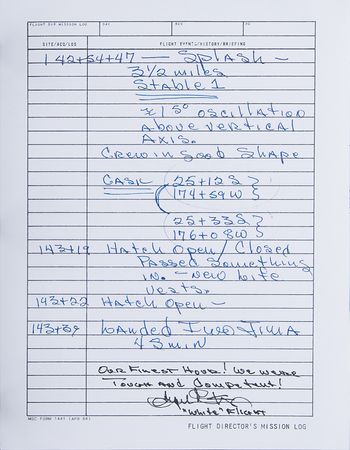 FLIGHT DIR MISSION LOG
DAY
REV
PG
SITE/ACQ/LOS
FLIGHT EVENTS/HISTORY/BRIEFING
142+54+47 — SPLASH —
3 1/2 miles
Stable 1
±15° oscillation
above vertical
Axis.
Crew in good Shape
25+12S
174+59W
25+33S
176+08W
143+19 Hatch Open/Closed
Passed something
in. - new life
vests.
143+22 Hatch Open —
143+39 Landed Iwo Jima
45 min
Our Finest Hour! We were
Tough and Competent!
"White" Flight
MSC FORM 1441 (APR 68)
FLIGHT DIRECTOR'S MISSION LOG